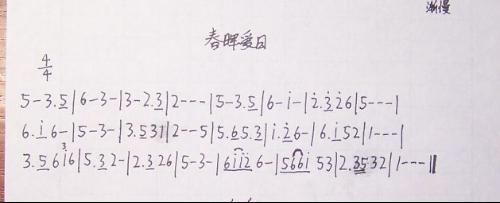 渐慢
春晖爱日
4/4
5-3.5|6-3-|3-2.3|2---|5-3.5|6-i-|i2.3i26|5---|
6.i6-|5-3-|3.531|2--5|5.65.3|i.26-|6.i52|1---|
3.56i6|5.32-|2.326|5-3-|6ii26-|566i53|2.3532|1---||